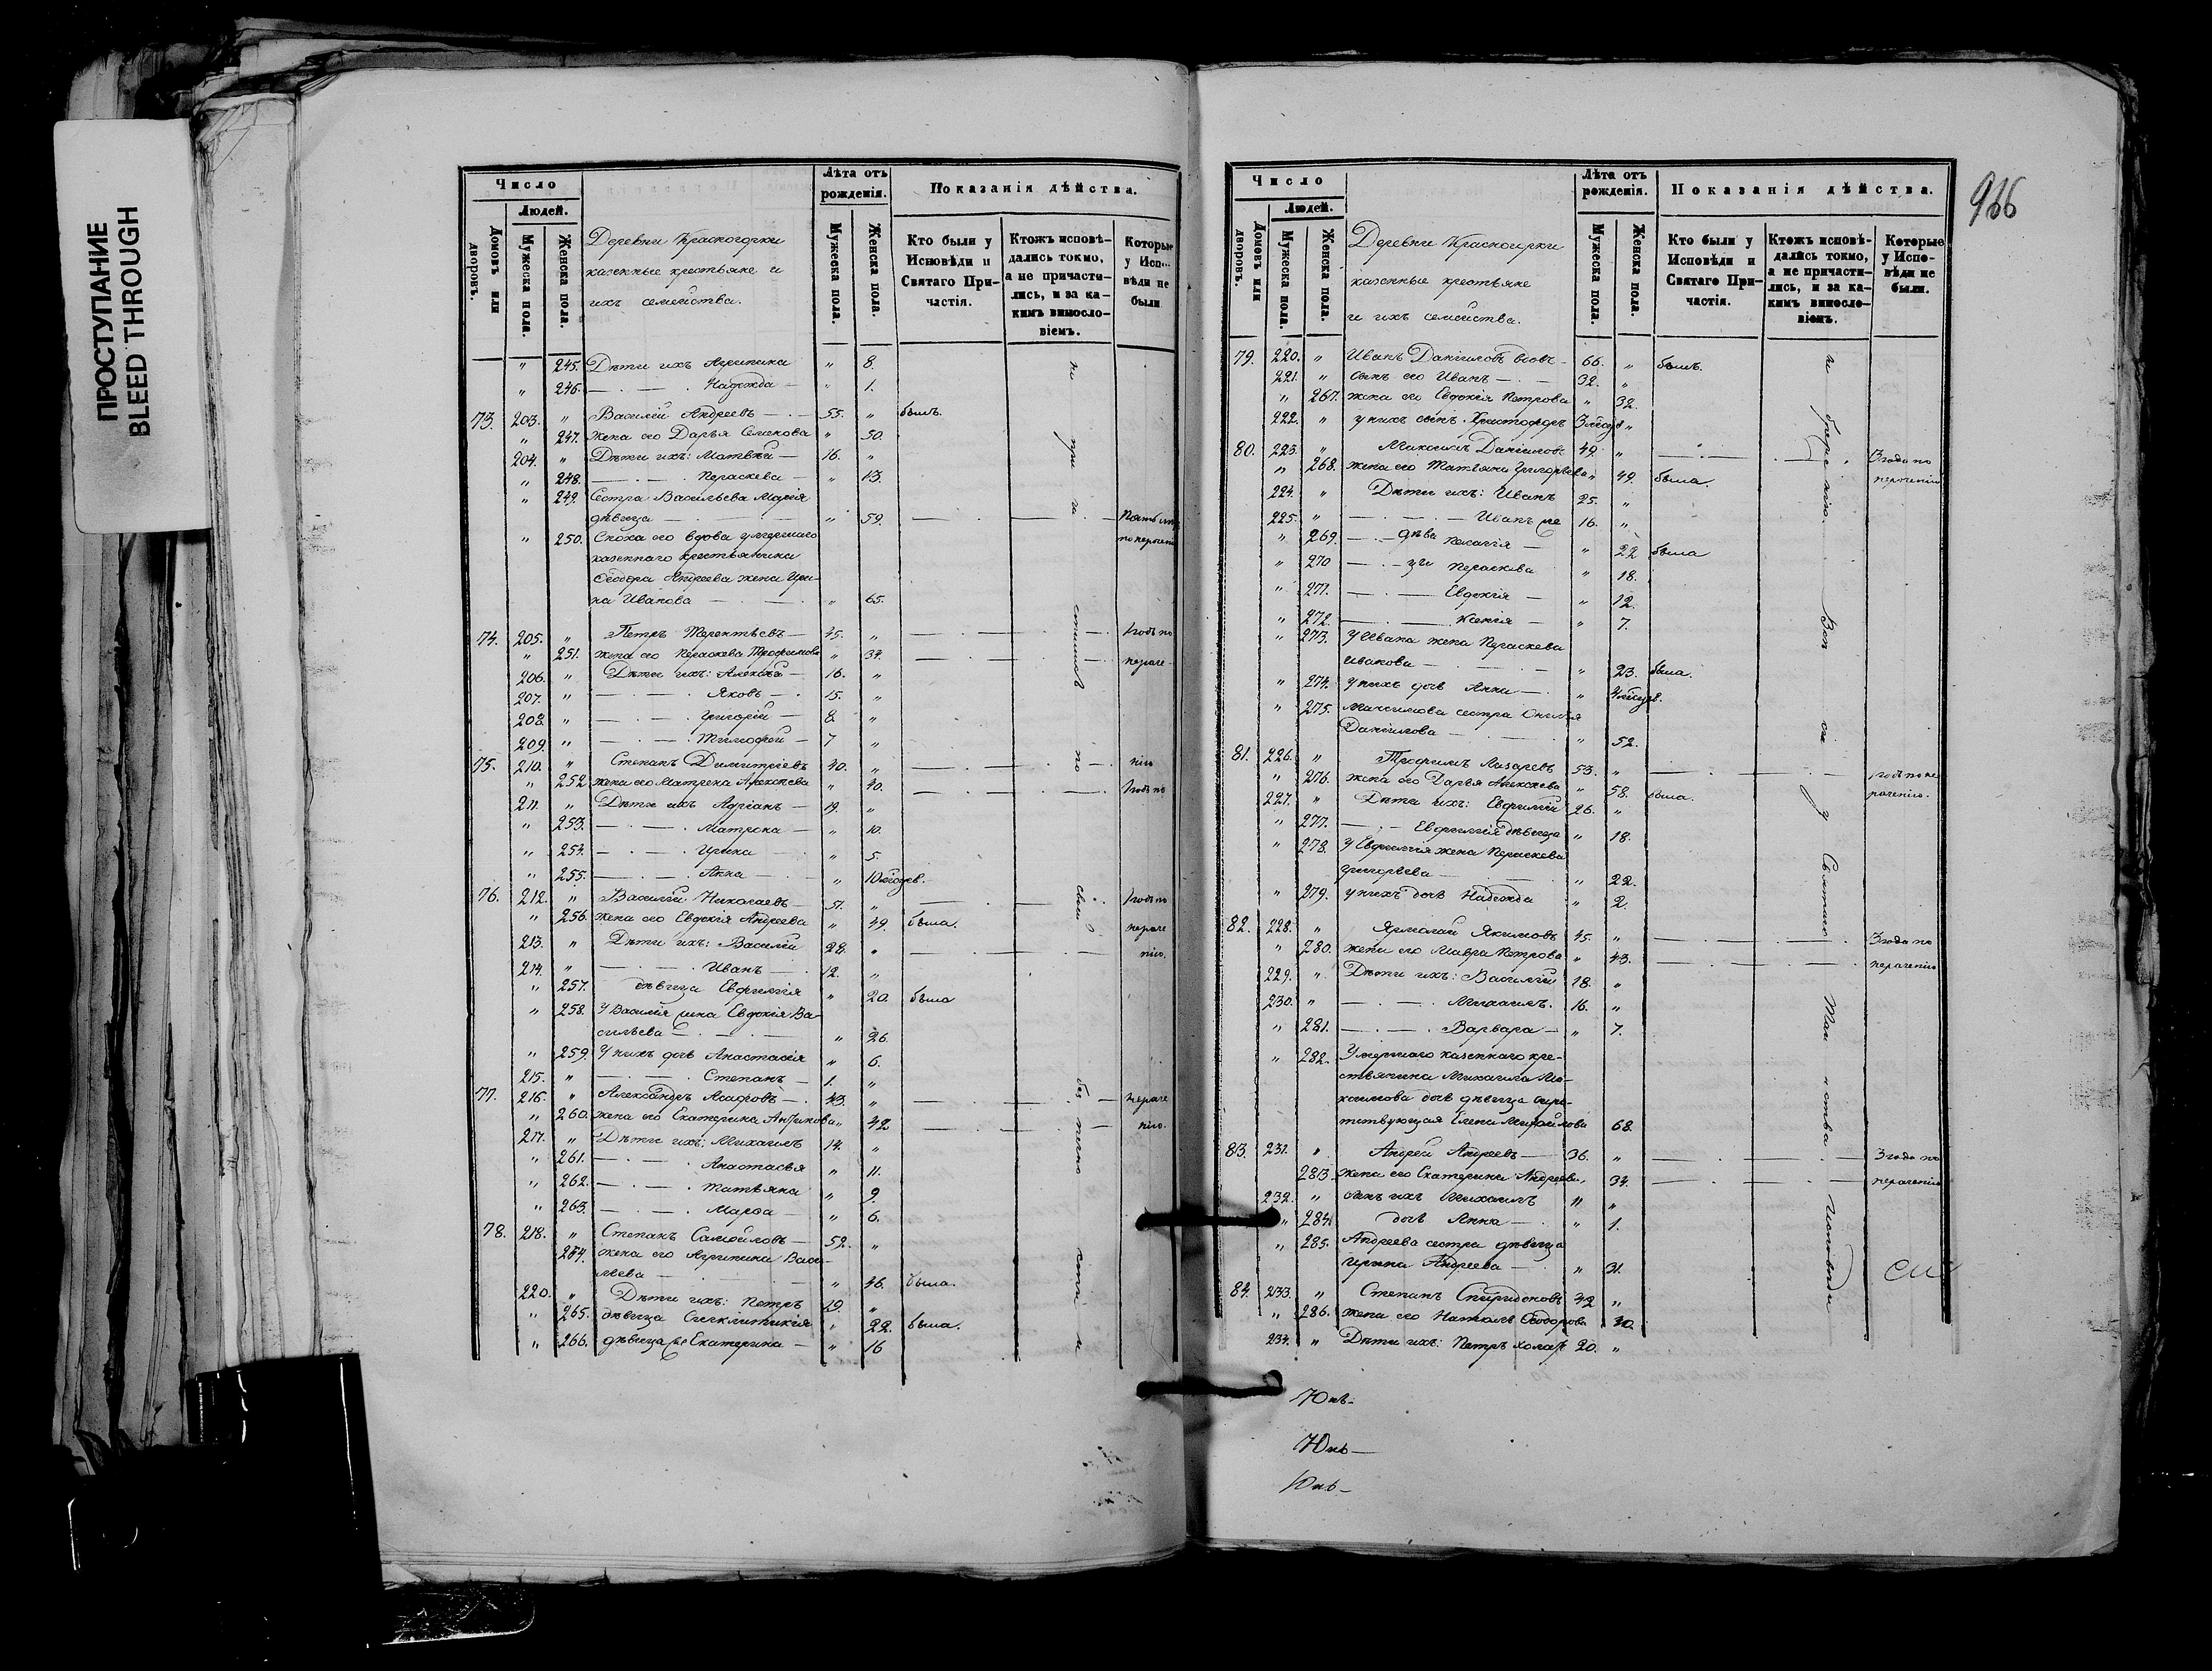 ПРОСТУПАНИЕ
BLEED THROUGH
Число
Людей.
Домовъ или дворовъ.
Мужеска пола.
Женска пола.
Деревни Красногорки
казенные крестьяне и
ихъ семейства.
Лѣта отъ рожденія.
Мужеска пола.
Женска пола.
Показанія дѣйства.
Кто были у Исповѣди и Святаго Причастія.
Ктожъ исповѣдались токмо, а не причастились, и за какимъ винословіемъ.
Которые у Исповѣди не были
" 245. Дѣти ихъ Агрипина " 8.
" 246. — Надежда — " 1.
73. 203. " Василій Андреевъ — 55. " былъ.
" 247. жена его Дарья Семенова " 50.
204. " Дѣти ихъ: Матвѣй — 16. "
" 248. — Параскева — " 13.
" 249. Сестра Васильева Марія
дѣвица — " 59.
" 250. Сноха его вдова умершаго
казеннаго крестьянина
Ѳедора Андреева жена Ири-
на Иванова — " 65.
74. 205. " Петръ Терентьевъ — 45. " 1 годъ по
" 251. жена его Параскева Трофимова " 34. нераче-
206. " Дѣти ихъ: Алексѣй — 16. "
207. " — Яковъ — 15. "
208. " — Григорій — 8. "
209. " — Тимофей — 7 "
75. 210. " Степанъ Димитріевъ 40. " нію
" 252. жена его Матрена Алексѣева " 40. 1 годъ по
211. " Дѣти ихъ Адріанъ — 19. "
" 253. — Матрона — " 10.
" 254. — Ирина " 5.
" 255. — Анна — " 10 мѣсяцев.
76. 212. " Василій Николаевъ — 51. " 1 годъ по
" 256. жена его Евдокія Андреева " 49. была. нераче
213. " Дѣти ихъ: Василій 28. " нію.
214. " — Иванъ — 12. "
" 257. дѣвица Евфимія " 20. была
" 258. У Василія жена Евдокія Ва-
сильева — " 26.
" 259. У нихъ дочь Анастасія " 6.
215. " — Степанъ — 1. "
77. 216. " Александръ Асафовъ — 43. " нераче
" 260. жена его Екатерина " 42 нію.
217. " Дѣти ихъ: Михаилъ 14. "
" 261. — Анастасья " 11.
" 262. — Татьяна " 9.
" 263. — Марѳа — " 6.
78. 218. " Степанъ Самойловъ — 52. "
264. жена его Агрипина Васи-
льева — " 46. была.
220. " Дѣти ихъ: Петръ 19. "
" 265. дѣвица Синклитикія " 22. была.
" 266. дѣвица Екатерина — " 16
966
Число
Людей.
Домовъ или дворовъ.
Мужеска пола.
Женска пола.
Деревни Красногорки
казенные крестьяне
и ихъ семейства.
Лѣта отъ рожденія.
Мужеска пола.
Женска пола.
Показанія дѣйства.
Кто были у Исповѣди и Святаго Причастія.
Ктожъ исповѣдались токмо, а не причастились, и за какимъ винословіемъ.
Которые у Исповѣди не были.
79. 220. " Иванъ Даниловъ вдовъ — 66. " былъ.
221. " Сынъ его Иванъ — 32. "
" 267. жена его Евдокія Петрова " 32.
222. " у нихъ сынъ Христофоръ 3 мѣсяц "
80. 223. " Максимъ Даниловъ 49. " 3 года по
" 268. жена его Татьяна Григорьева " 49. была. нераченію
224. " Дѣти ихъ: Иванъ 25. "
225. " — Иванъ 16. "
" 269. — дѣви Пелагія — " 22 была
" 270 — цы Параскева " 18.
" 271. — Евдокія — " 12.
" 272. — Ксенія — " 7.
" 273. У Ивана жена Параскева
Иванова — " 23. была.
" 274. У нихъ дочь Анна — " 4 мѣсяцев.
" 275. Максимова сестра
Данилова — " 52.
81. 226. " Трофимъ Лазаревъ 53. " 1 годъ по не
" 276. жена его Дарья Алексѣева " 58. была. раченію.
227. " Дѣти ихъ: Евфимій 26. "
" 277. — Евфимія дѣвица " 18.
" 278. У Евфимія жена Параскева
Григорьева — " 22.
" 279. У нихъ дочь Надежда " 2.
82. 228. " Ярмолай Якимовъ 45. " 3 года по
" 280. жена его Мавра Петрова " 43. нераченію
229. " Дѣти ихъ: Василій 18. "
230. " — Михаилъ. 16. "
" 281. — Варвара — " 7.
" 282. Умершаго казеннаго кре-
стьянина Михаила
дочь дѣвица сиро-
тствующая Елена Михайлова 68.
83. 231. " Андрей Андреевъ — 36. " 3 года по
283. жена его Екатерина Андреева " 34. нераченію
232. " сынъ ихъ Михаилъ " "
" 284. дочь Анна — " 1.
" 285. Андреева сестра дѣвица
Ирина Андреева — " 31.
84. 233. " Степанъ Спиридоновъ 42 "
" 286. жена его Ѳеодорова 40.
234. " Дѣти ихъ: Петръ холас 20. "